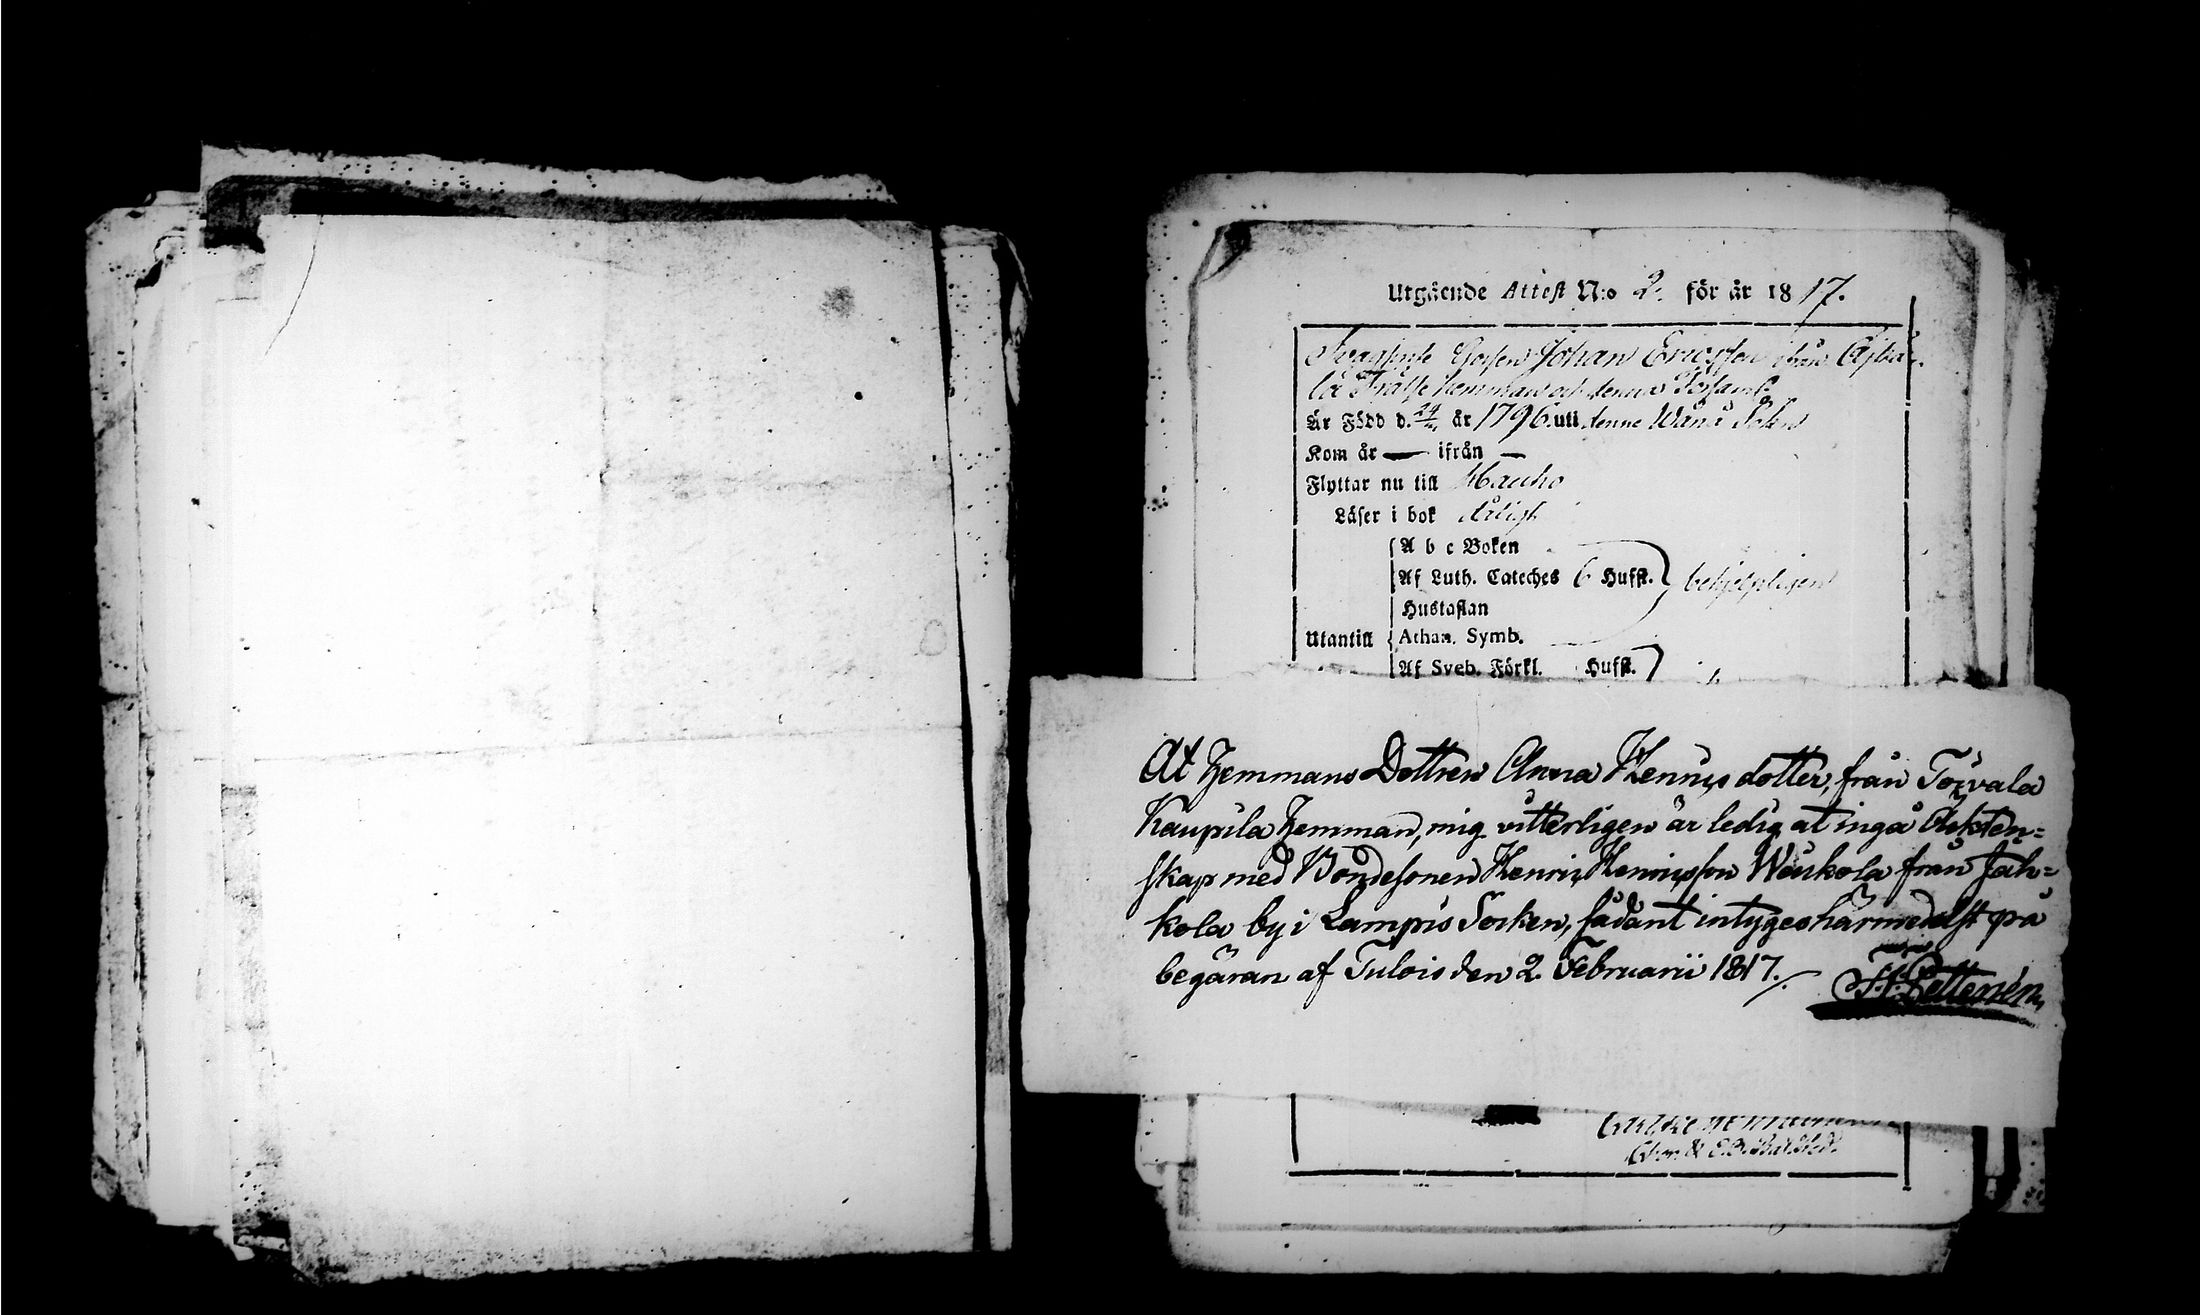 Utgående Attest N:o 2. för år 1817.
Johan Ericsson ifrån
Frälse hemman och denna Församl:
Är Född d. 24 år 1796 uti denne Wånå Sokn
Kom år — ifrån —
Flyttar nu till Hauho
Läser i bok
A b c Boken
Af Luth. Cateches 6 Hufst. behjelpligen
Hustaflan
Utantill Athan. Symb.
Af Sveb. Förkl. Hufst.
At Hemmans Dottren Anna Henricsdotter, från Torvala
Kaupila Hemman, mig vitterligen är ledig at ingå Ækten-
skap med Bondesonen Henric Henricsson Wäukola från Jah-
kola by i Lampis Socken, sådant intygas härmedelst på
begäran af Tulois den 2. Februarii 1817.